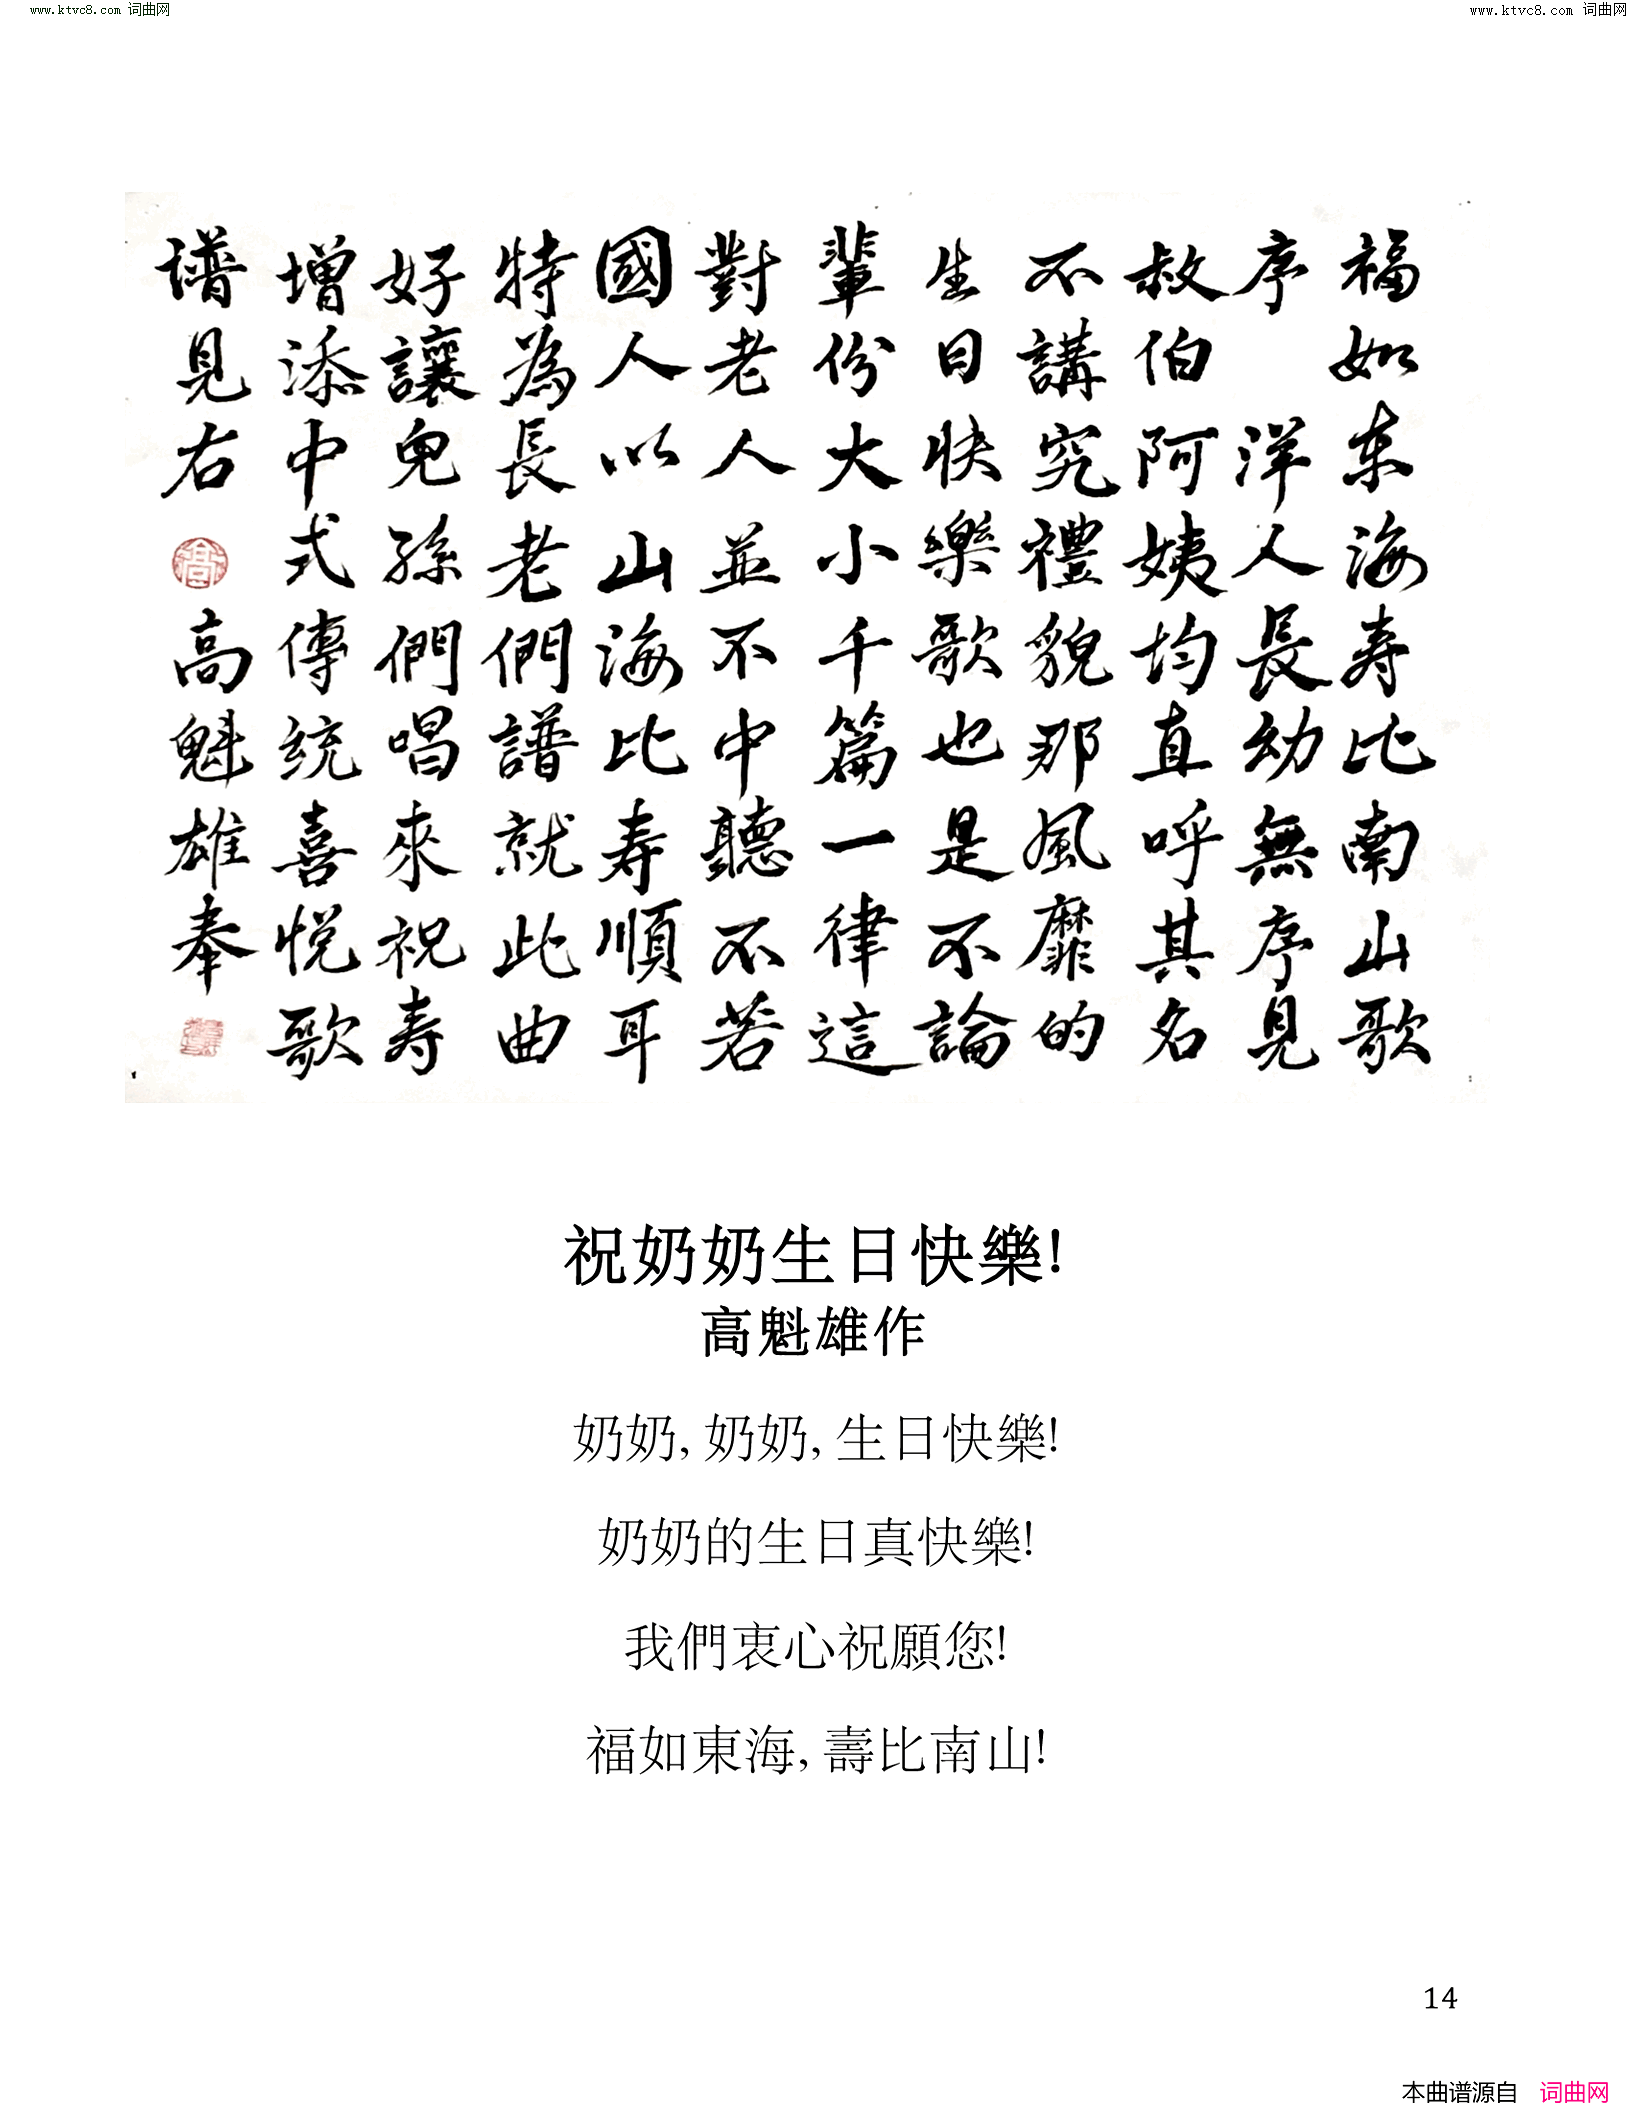 www.ktvc8.com 词曲网
www.ktvc8.com 词曲网
福如东海寿比南山歌
序 洋人長幼無序見
叔伯阿姨均直呼其名
不講究禮貌那風靡的
生日快樂歌也是不論
輩份大小千篇一律這
對老人並不中聽不若
國人以山海比寿順耳
特為長老們譜就此曲
好讓兒孫們唱來祝寿
增添中式傳統喜悅歌
谱見右 高魁雄奉
祝奶奶生日快樂!
高魁雄作
奶奶, 奶奶, 生日快樂!
奶奶的生日真快樂!
我們衷心祝願您!
福如東海, 壽比南山!
14
本曲谱源自 词曲网